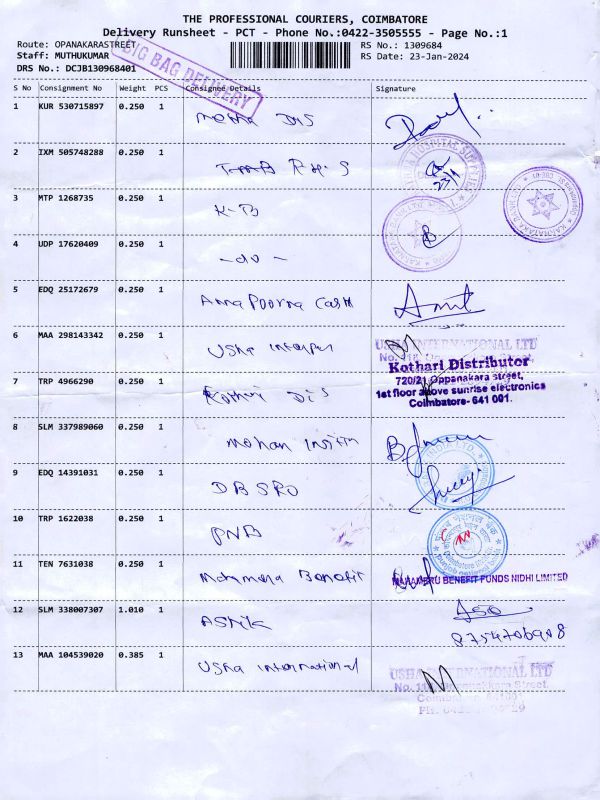 THE PROFESSIONAL COURIERS, COIMBATORE
Delivery Runsheet - PCT - Phone No.:0422-3505555 - Page No.:1
Route: OPANAKARASTREET
RS No.: 1309684
Staff: MUTHUKUMAR
RS Date: 23-Jan-2024
DRS No.: DCJB130968401
BIG BAG DELIVERY
S No Consignment No Weight PCS Consignee Details Signature
1 KUR 530715897 0.250 1
2 IXM 505748288 0.250 1
3 MTP 1268735 0.250 1 K.B
4 UDP 17620409 0.250 1 - do -
5 EDQ 25172679 0.250 1 Anna Poorna Cash
6 MAA 298143342 0.250 1 Usha
USHA INTERNATIONAL LTD
Kothari Distributor
720/21 Oppanakara street,
1st floor above sunrise electronics
Coimbatore- 641 001.
7 TRP 4966290 0.250 1 Kothari Dis
8 SLM 337989060 0.250 1 Mohan
9 EDQ 14391031 0.250 1 DBSRO
10 TRP 1622038 0.250 1 PNB
11 TEN 7631038 0.250 1 Benefit
MAHAMERU BENEFIT FUNDS NIDHI LIMITED
12 SLM 338007307 1.010 1
8754706908
13 MAA 104539020 0.385 1 Usha International
USHA INTERNATIONAL LTD